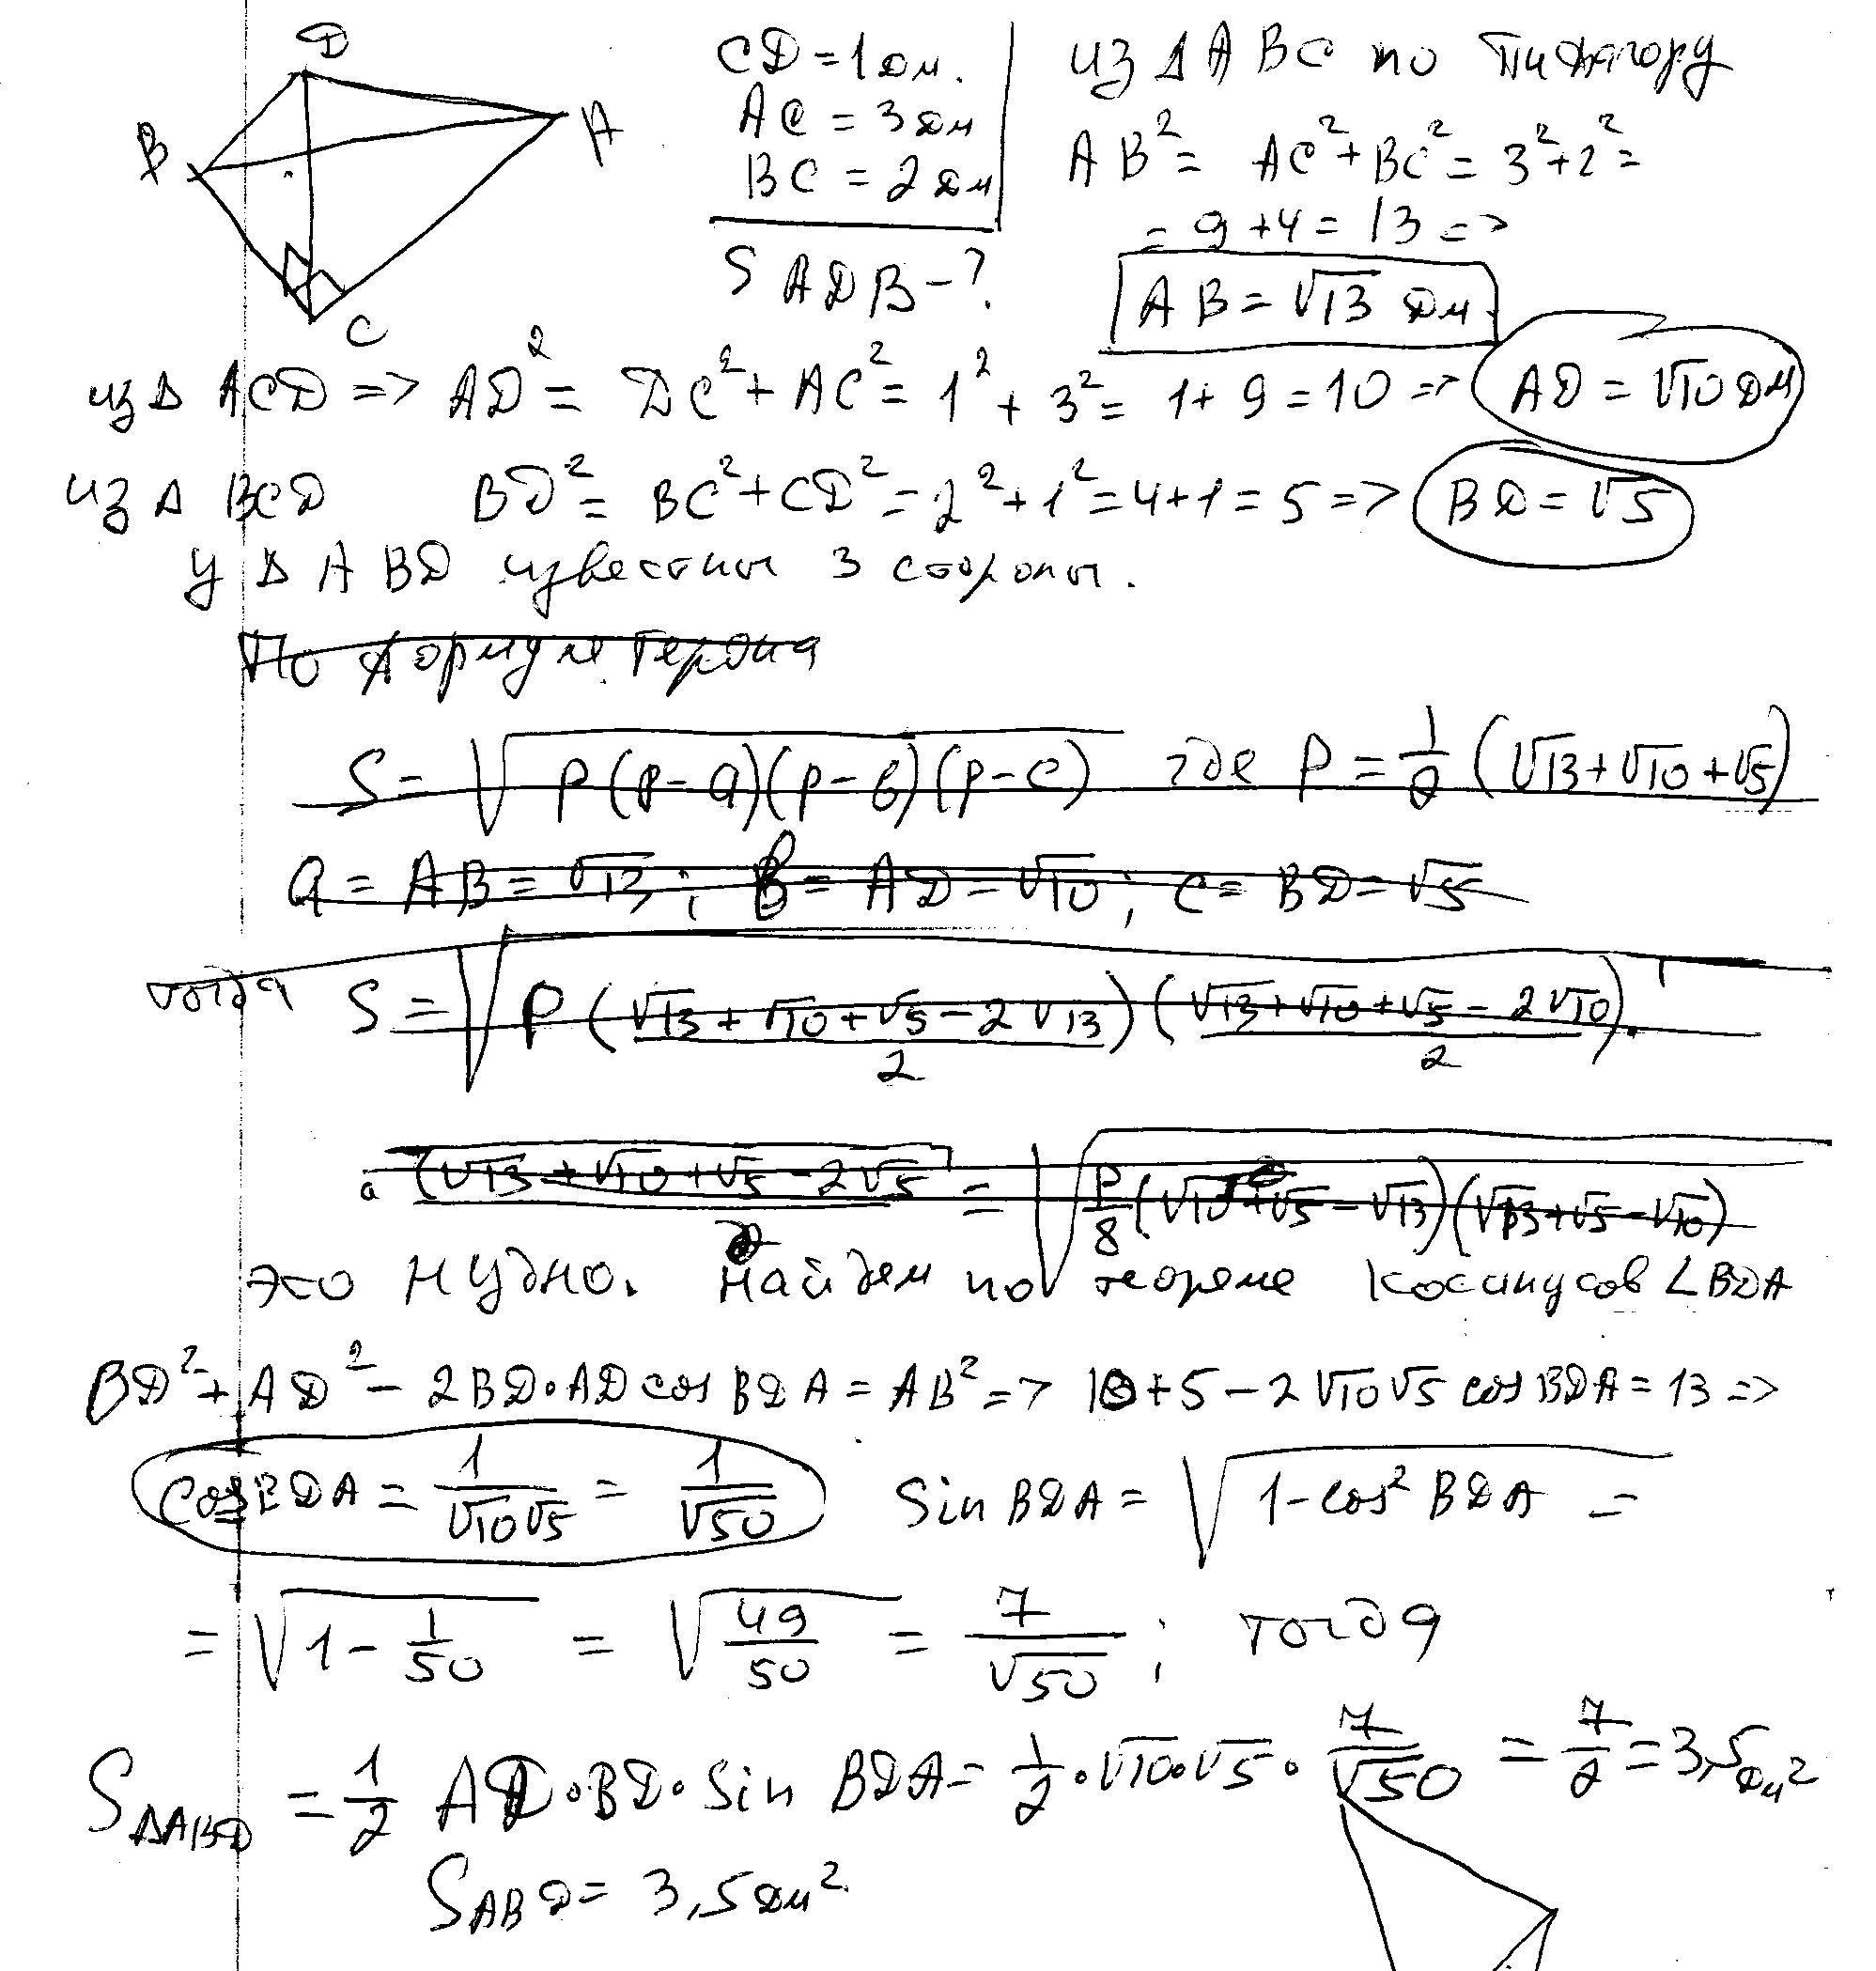 D
B
A
C
CD = 1 дм.
AC = 3 дм
BC = 2 дм
S ADB - ?
из Δ ABC по Пифагору
AB² = AC² + BC² = 3² + 2² =
= 9 + 4 = 13 =>
AB = √13 дм.
из Δ ACD => AD² = DC² + AC² = 1² + 3² = 1 + 9 = 10 => AD = √10 дм
из Δ BCD BD² = BC² + CD² = 2² + 1² = 4 + 1 = 5 => BD = √5
у Δ ABD известны 3 стороны.
По формуле Герона
S = √p(p-a)(p-b)(p-c) где P = 1/2 (√13 + √10 + √5)
a = AB = √13; b = AD = √10; c = BD = √5
тогда S = √P (√13 + √10 + √5 - 2√13)/2 (√13 + √10 + √5 - 2√10)/2 ·
· (√13 + √10 + √5 - 2√5)/2 = √P/8 (√10 + √5 - √13)(√13 + √5 - √10)
это нудно. Найдем по теореме косинусов ∠BDA
BD² + AD² - 2BD·AD cos BDA = AB² => 10 + 5 - 2√10√5 cos BDA = 13 =>
cos BDA = 1/√10√5 = 1/√50 sin BDA = √1 - cos² BDA =
= √1 - 1/50 = √49/50 = 7/√50 ; тогда
S ΔABD = 1/2 AD·BD·sin BDA = 1/2·√10·√5·7/√50 = 7/2 = 3,5 дм²
S ABD = 3,5 дм²